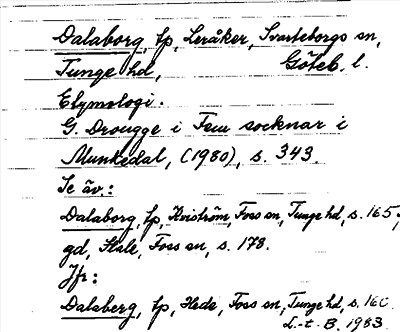 Dalaborg, lp, Leråker, Svarteborgs sn,
Tunge hd, Göteb. l.
Etymologi.
G. Drougge i Fem socknar i
Munkedal, (1980), s. 343.
Se äv.:
Dalaborg, lp, Kviström, Foss sn, Tunge hd, s. 165,
gd, Stale, Foss sn, s. 178.
Jfr:
Dalaberg, lp, Hede, Foss sn, Tunge hd, s. 160.
L-t B. 1983.